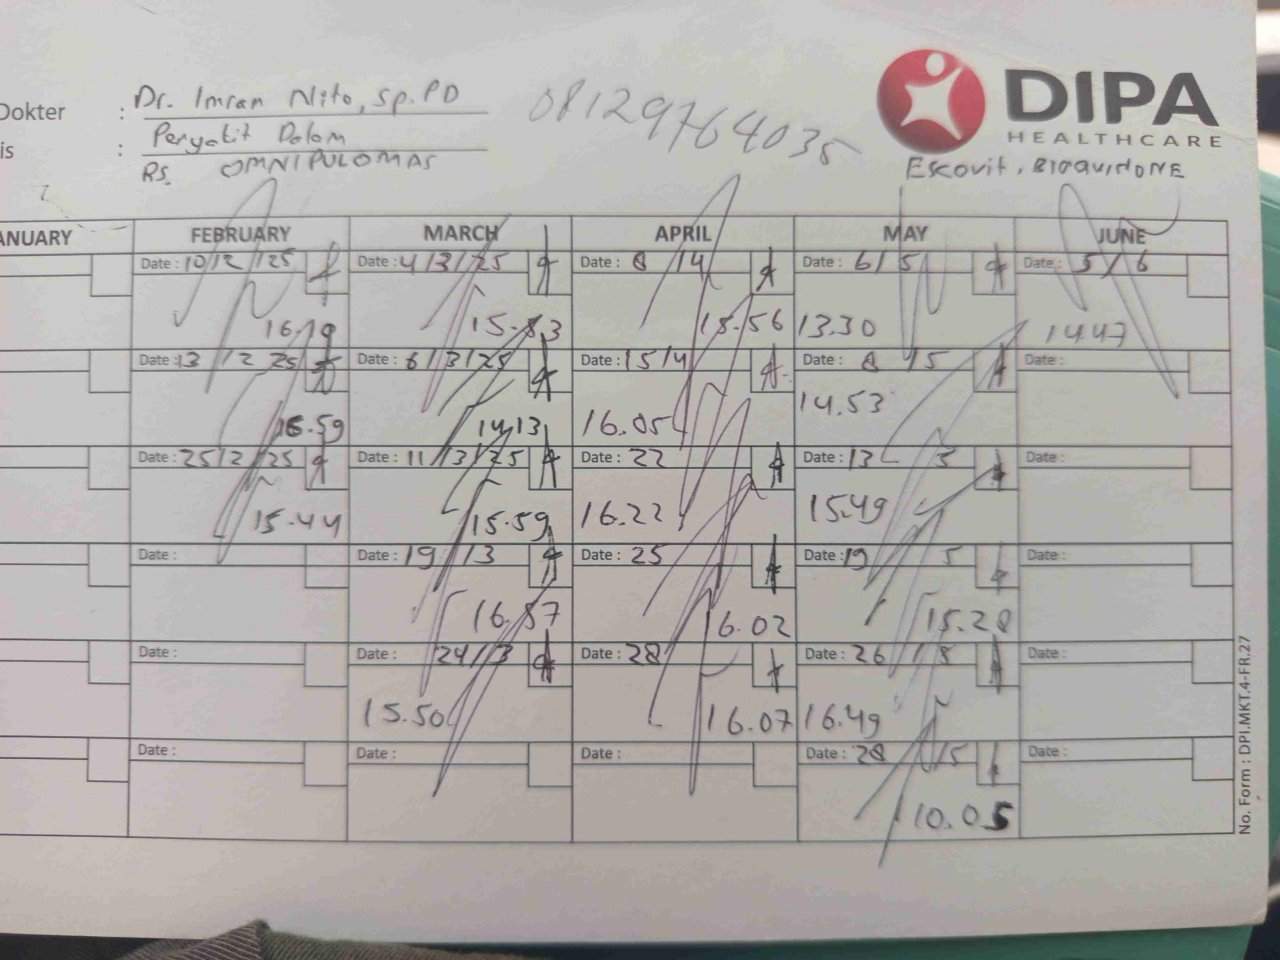 Dokter : Dr. Imran Nito, Sp.PD 08129764035
is : Penyakit Dalam
RS. OMNI PULOMAS
DIPA
HEALTHCARE
Escovit, BIOQUINONE
ANUARY FEBRUARY MARCH APRIL MAY JUNE
Date : 10/2/25 Date : 4/3/25 Date : 8/4 Date : 6/5 Date : 5/6
16.19 15.53 15.56 13.30 14.47
Date : 13/2 25 Date : 6/3/25 Date : 15/4 Date : 8/5 Date :
16.59 14.13 16.05 14.53
Date : 25/2/25 Date : 11/3/25 Date : 22 Date : 13 5 Date :
15.44 15.59 16.22 15.49
Date : Date : 19/3 Date : 25 Date : 19 5 Date :
16.57 16.02 15.28
Date : Date : 24/3 Date : 28 Date : 26/5 Date :
15.50 16.07 16.49
Date : Date : Date : Date : 28/5 Date :
10.05
No. Form : DPI.MKT.4-FR.27